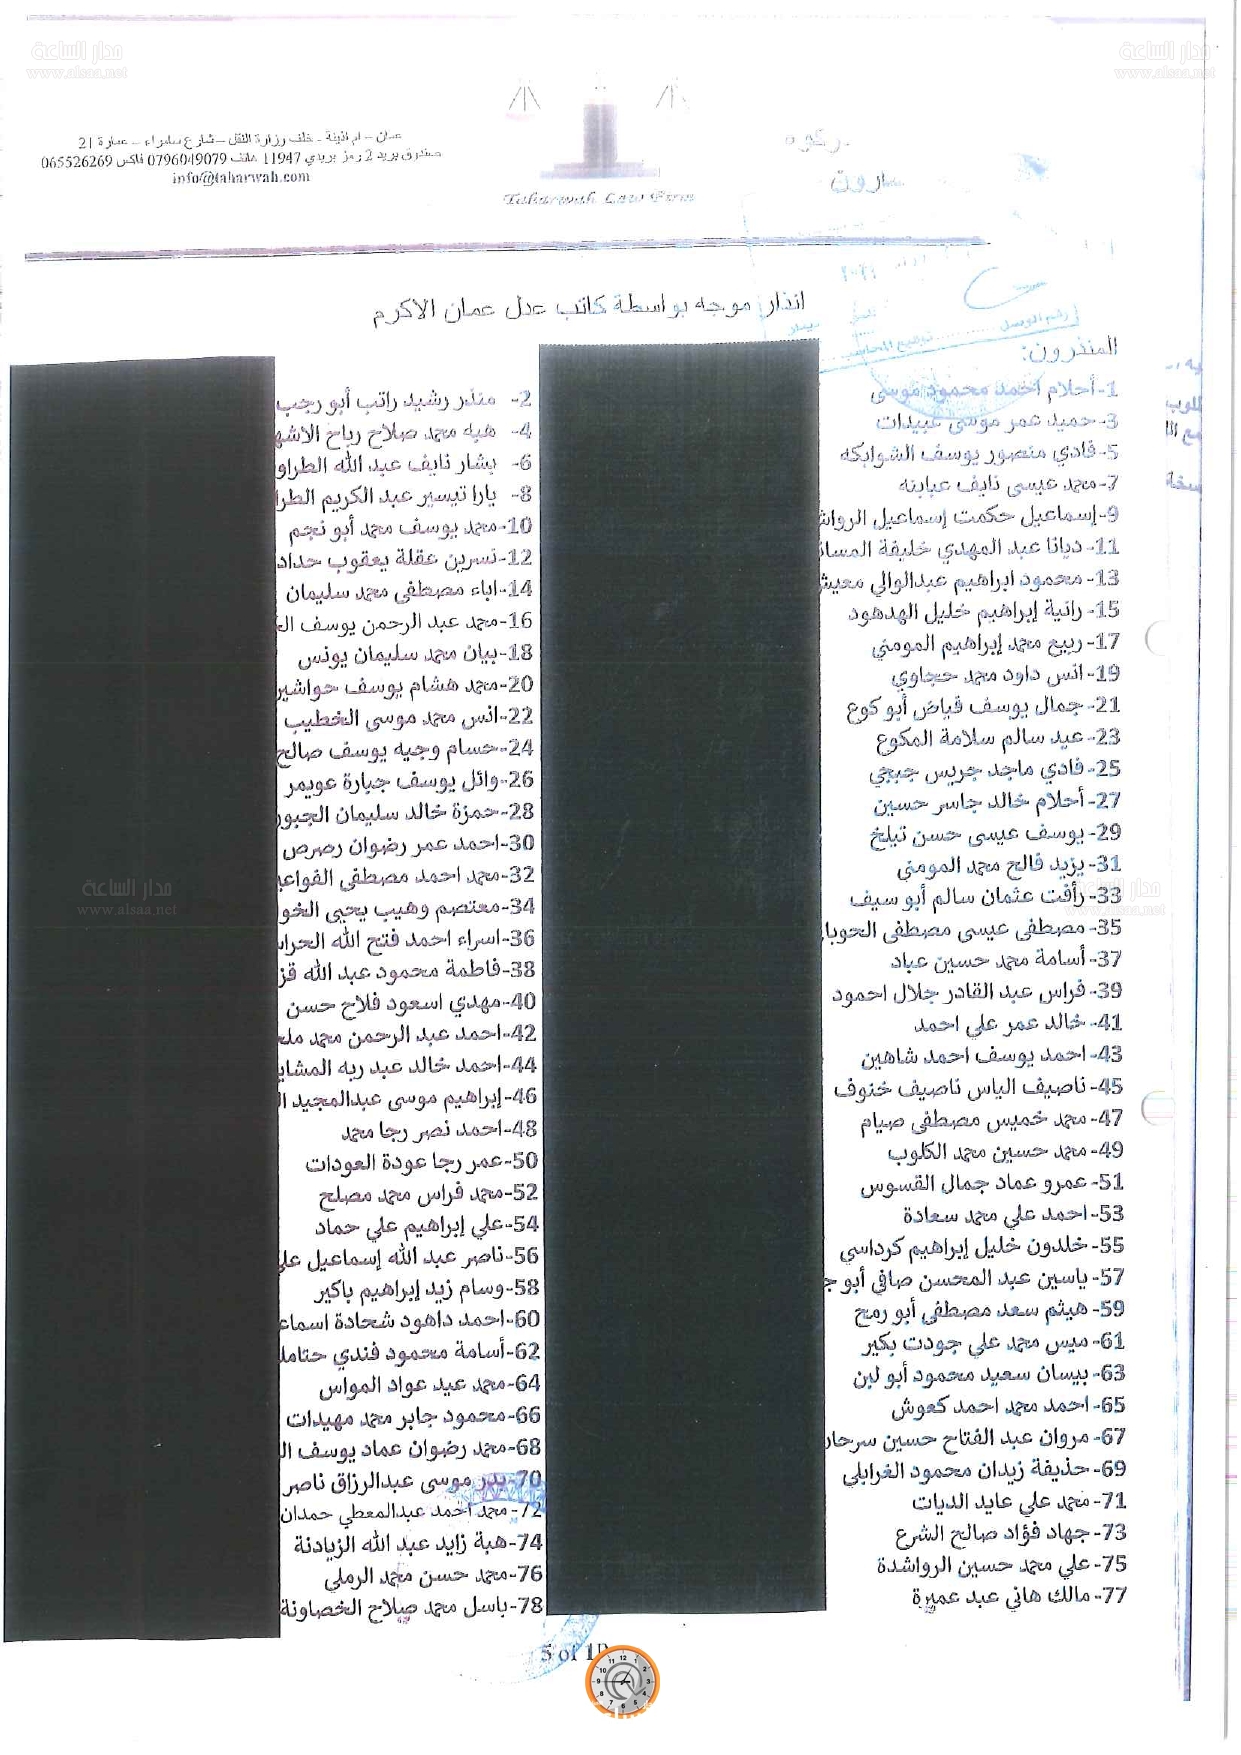 مدار الساعة
www.alsaa.net
مدار الساعة
www.alsaa.net
عمان – ام اذينة – خلف وزارة النقل – شارع سامراء – عمارة 21
صندوق بريد 2 رمز بريدي 11947 هاتف 0796049079 فاكس 065526269
info@taharwah.com
Taharwah Law Firm
انذار موجه بواسطة كاتب عدل عمان الاكرم
رقم الوصل
توقيع المحاسب
المنذرون:
1-أحلام احمد محمود موسى
2- منذر رشيد راتب أبو رجب
3-حميد عمر موسى عبيدات
4- هبه محمد صلاح رباح الاشه
5-فادي منصور يوسف الشوابكه
6- بشار نايف عبد الله الطراو
7-محمد عيسى نايف عبابنه
8- يارا تيسير عبد الكريم الطرا
9-إسماعيل حكمت إسماعيل الرواش
10-محمد يوسف محمد أبو نجم
11- ديانا عبد المهدي خليفة المسا
12-نسرين عقلة يعقوب حداد
13- محمود ابراهيم عبدالوالي معيش
14-اباء مصطفى محمد سليمان
15- رانية إبراهيم خليل الهدهود
16-محمد عبد الرحمن يوسف ال
17- ربيع محمد إبراهيم المومني
18-بيان محمد سليمان يونس
19- انس داود محمد حجاوي
20-محمد هشام يوسف حواشير
21- جمال يوسف فياض أبو كوع
22-انس محمد موسى الخطيب
23- عيد سالم سلامة المكوع
24-حسام وجيه يوسف صالح
25- فادي ماجد جريس جبجي
26-وائل يوسف جبارة عويمر
27- أحلام خالد جاسر حسين
28-حمزة خالد سليمان الجبور
29- يوسف عيسى حسن تيلخ
30-احمد عمر رضوان رصرص
31- يزيد فالح محمد المومني
32-محمد احمد مصطفى الفواعي
33- رأفت عثمان سالم أبو سيف
34-معتصم وهيب يحيى الخو
35- مصطفى عيسى مصطفى الحوبا
36-اسراء احمد فتح الله الحرا
37- أسامة محمد حسين عباد
38-فاطمة محمود عبد الله قز
39- فراس عبد القادر جلال احمود
40-مهدي اسعود فلاح حسن
41- خالد عمر علي احمد
42-احمد عبد الرحمن محمد ملح
43- احمد يوسف احمد شاهين
44-احمد خالد عبد ربه المشاي
45- ناصيف الياس ناصيف خنوف
46-إبراهيم موسى عبدالمجيد ا
47- محمد خميس مصطفى صيام
48-احمد نصر رجا محمد
49- محمد حسين محمد الكلوب
50-عمر رجا عودة العودات
51- عمرو عماد جمال القسوس
52-محمد فراس محمد مصلح
53-احمد علي محمد سعادة
54-علي إبراهيم علي حماد
55- خلدون خليل إبراهيم كرداسي
56-ناصر عبد الله إسماعيل علي
57- ياسين عبد المحسن صافي أبو ج
58-وسام زيد إبراهيم باكير
59- هيثم سعد مصطفى أبو رمح
60-احمد داهود شحادة اسماع
61- ميس محمد علي جودت بكير
62-أسامة محمود فندي حتامل
63- بيسان سعيد محمود أبو لبن
64-محمد عيد عواد المواس
65- احمد محمد احمد كعوش
66-محمود جابر محمد مهيدات
67- مروان عبد الفتاح حسين سرحان
68-محمد رضوان عماد يوسف ال
69- حذيفة زيدان محمود الغرابلي
70-بدر موسى عبدالرزاق ناصر
71- محمد علي عايد الديات
72-محمد احمد عبدالمعطي حمدان
73- جهاد فؤاد صالح الشرع
74-هبة زايد عبد الله الزيادنة
75- علي محمد حسين الرواشدة
76-محمد حسن محمد الرملي
77- مالك هاني عبد عميرة
78-باسل محمد صلاح الخصاونة
مدار الساعة
www.alsaa.net
مدار الساعة
www.alsaa.net
5 of 1